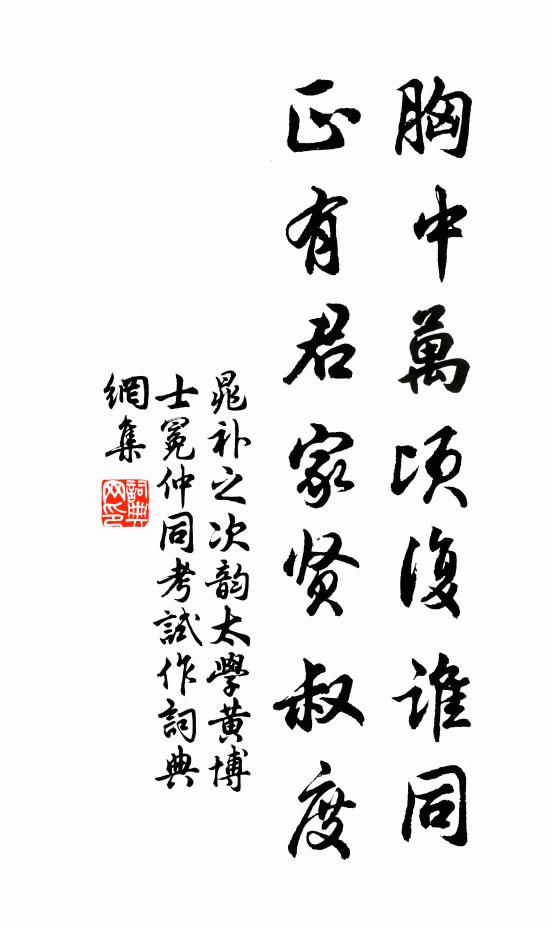 胸中萬頃復谁同
正有君家贤叔度
晁补之次韵太學黄博
士冕仲同考試作詞典
網集
詞典
网印